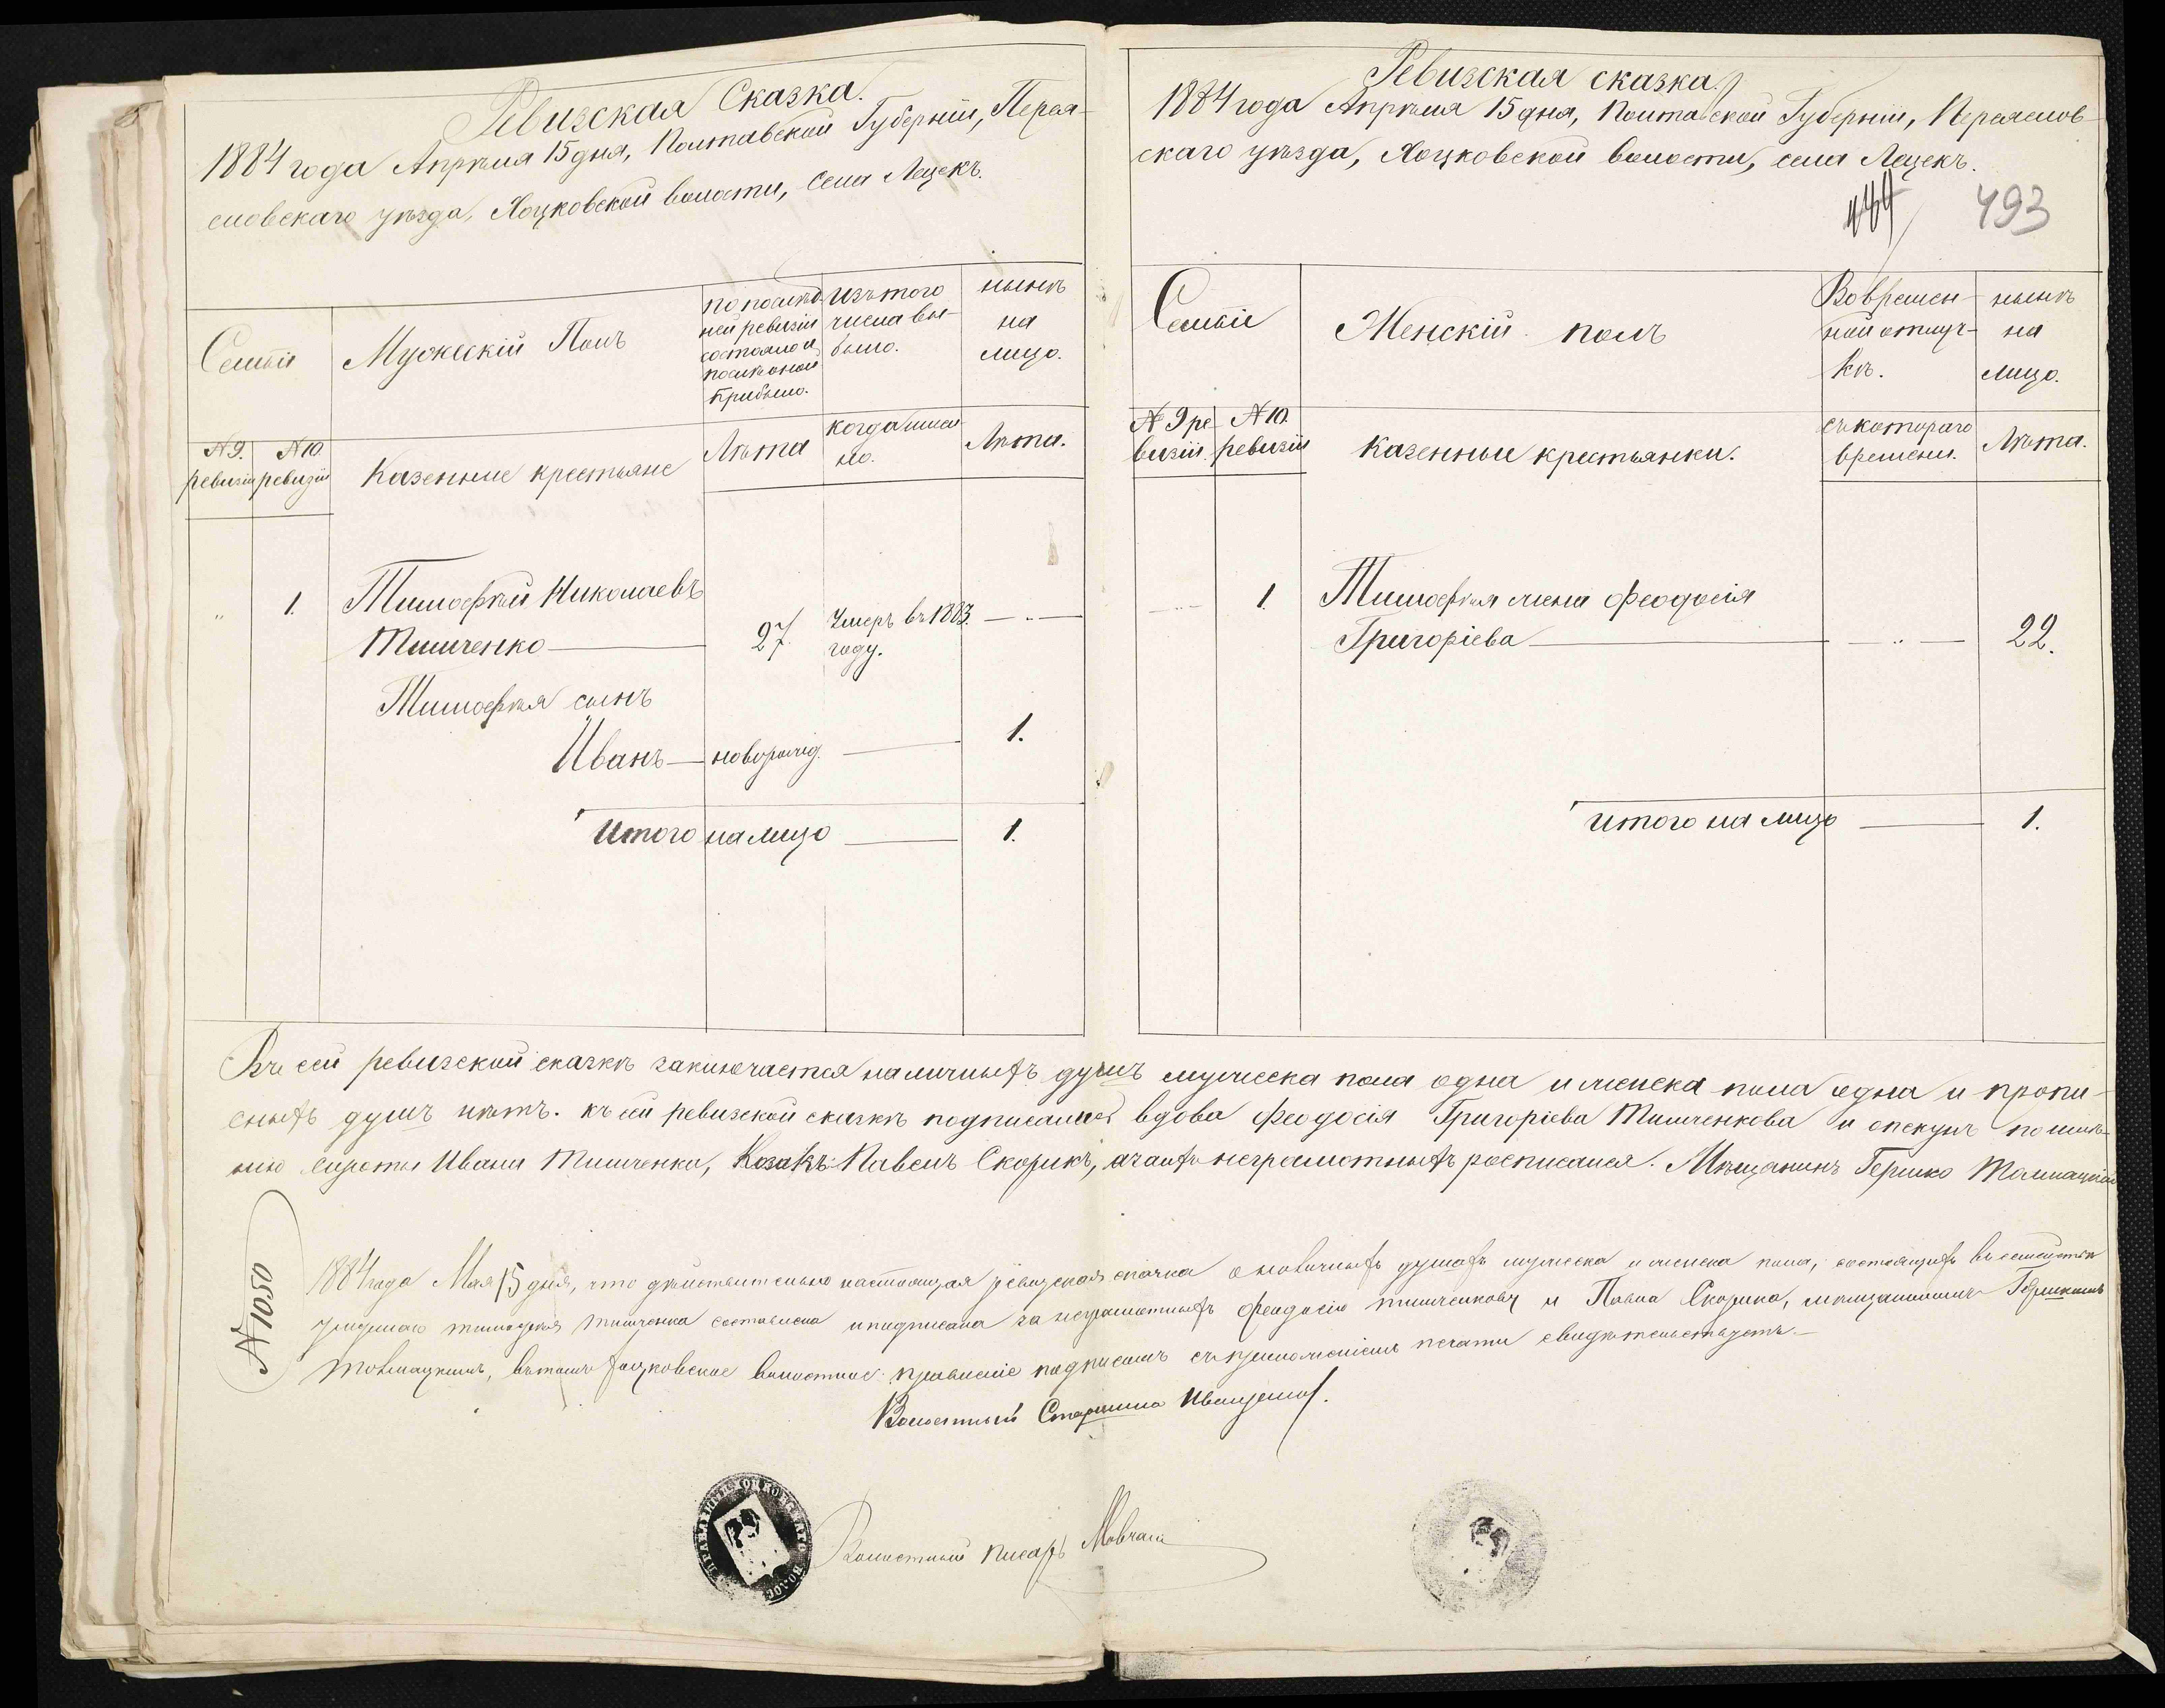 Ревизская Сказка.
1884 года Апрѣля 15 дня, Полтавской Губерніи, Перея-
словскаго уѣзда, Лоцковской волости, Села Лецекъ.
Семьи
Мужескій Полъ
по послѣд
ней ревизіи
состояло и
послѣ оной
прибыло.
Изъ того
числа вы-
было.
нынѣ
на
лицо.
№ 9. ревизіи
№ 10. ревизіи
Казенные крестьяне
Лѣта
когда имен
но.
Лѣта.
1.
Тимофѣй Николаевъ
Тимченко
27.
Умеръ въ 1883.
году.
Тимофѣя сынъ
Иванъ — новорожд.
1.
Итого на лицо
1.
Ревизская сказка.
1884 года Апрѣля 15 дня, Полтавской Губерніи, Переяслов-
скаго уѣзда, Лоцковской волости, села Лецекъ.
493
Семьи
Женскій полъ
Во времен-
ной отлуч-
кѣ.
нынѣ
на
лицо.
№ 9 ре-
визіи.
№ 10.
ревизіи
Казенные крестьянки.
съ котораго
времени.
Лѣта.
1.
Тимофѣя жена Феодосія
Григоріева
22.
Итого на лицо
1.
Въ сей ревизской сказкѣ заключается наличныхъ душъ мужеска пола одна и женска пола одна и пропи-
сныхъ душъ нѣтъ. къ сей ревизской сказкѣ подписались вдова Феодосія Григоріева Тимченкова и опекунъ по имѣ-
нію сироты Ивана Тимченко, Козакъ Павелъ Скорикъ, а за ихъ неграмотныхъ росписался. Мѣщанинъ Гершко
№ 1050
1884 года Мая 15 дня, что дѣйствительно настоящая ревизская сказка о наличныхъ душахъ мужеска и женска пола, состоящихъ въ семействѣ
умершаго Тимофѣя Тимченка составлена и подписана за неграмотныхъ Феодосію Тимченкову и Павла Скорика, мѣщаниномъ Гершкомъ
въ томъ волостное правленіе подписомъ съ приложеніемъ печати свидѣтельствуетъ.
Волостный Старшина
Волостный писарь Мовчан